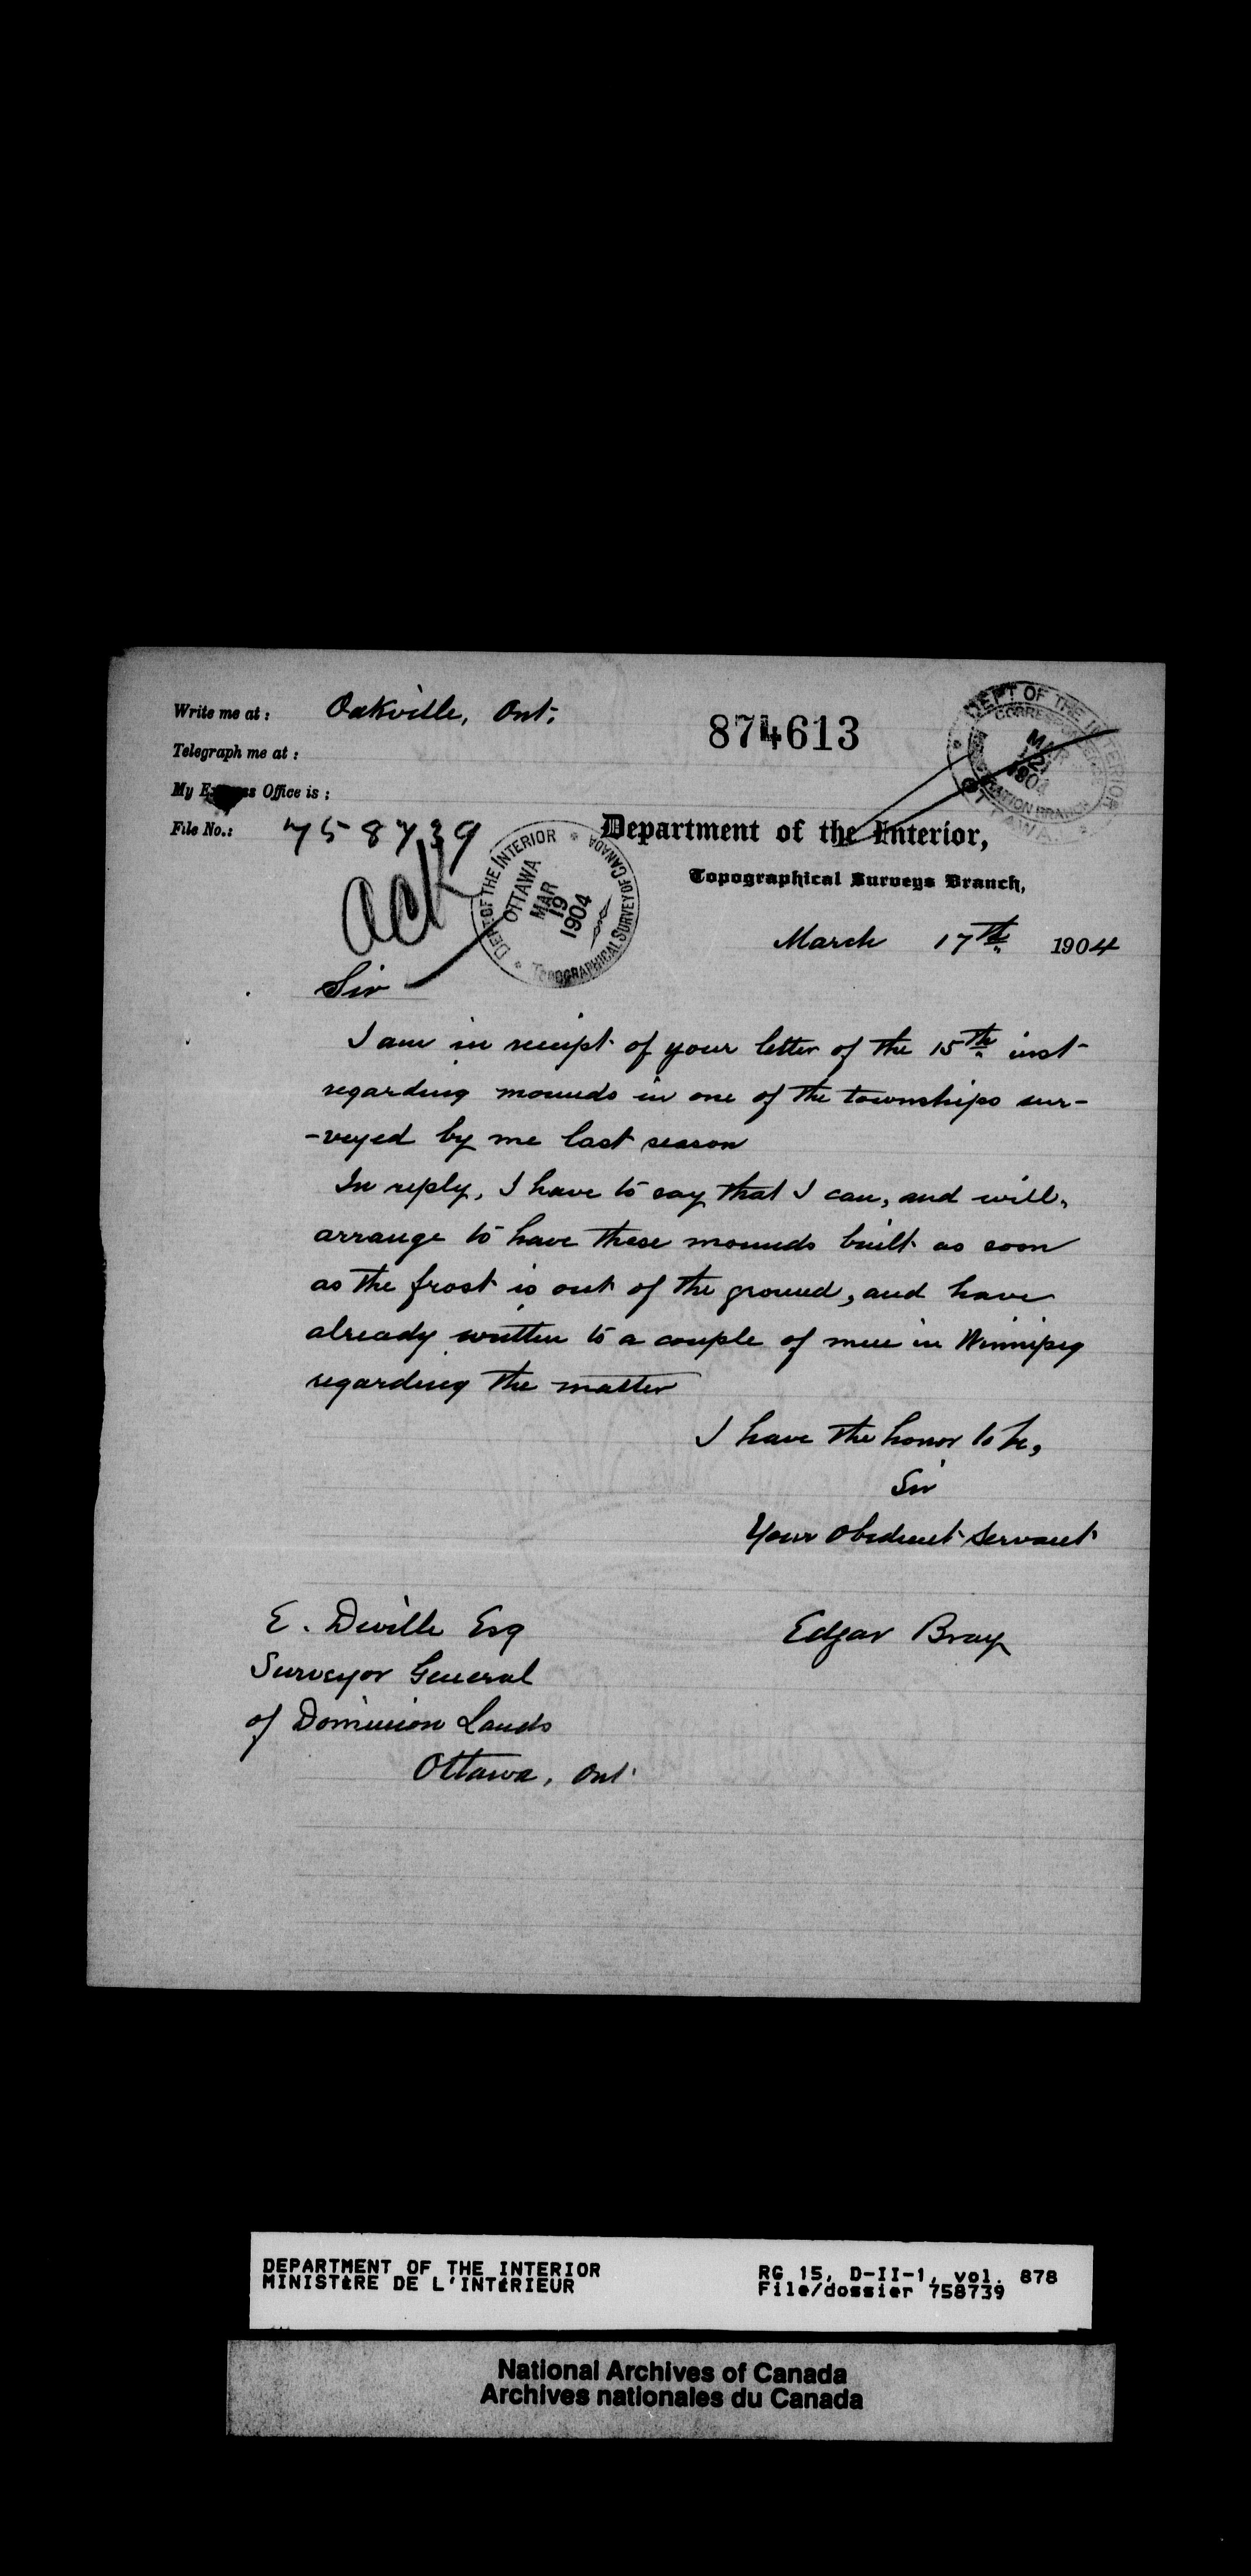 Write me at: Oakville, Ont.
874613
Telegraph me at:
My Express Office is:
File No.: 758739
DEPT OF THE INTERIOR
CORRESPONDENCE
MAR 21 1904
REGISTRATION BRANCH
OTTAWA
Department of the Interior,
Topographical Surveys Branch,
Ack
DEPT. OF THE INTERIOR
OTTAWA
MAR
19
1904
TOPOGRAPHICAL SURVEY OF CANADA
March 17th 1904
Sir
I am in receipt of your letter of the 15th inst
regarding mounds in one of the townships sur-
-veyed by me last season
In reply, I have to say that I can, and will,
arrange to have these mounds built as soon
as the frost is out of the ground, and have
already written to a couple of men in Winnipeg
regarding the matter
I have the honor to be,
Sir
Your obedient servant
Edgar Bray
E. Deville Esq
Surveyor General
of Dominion Lands
Ottawa, Ont.
DEPARTMENT OF THE INTERIOR
MINISTÈRE DE L'INTÉRIEUR
RG 15, D-II-1, vol. 878
File/dossier 758739
National Archives of Canada
Archives nationales du Canada